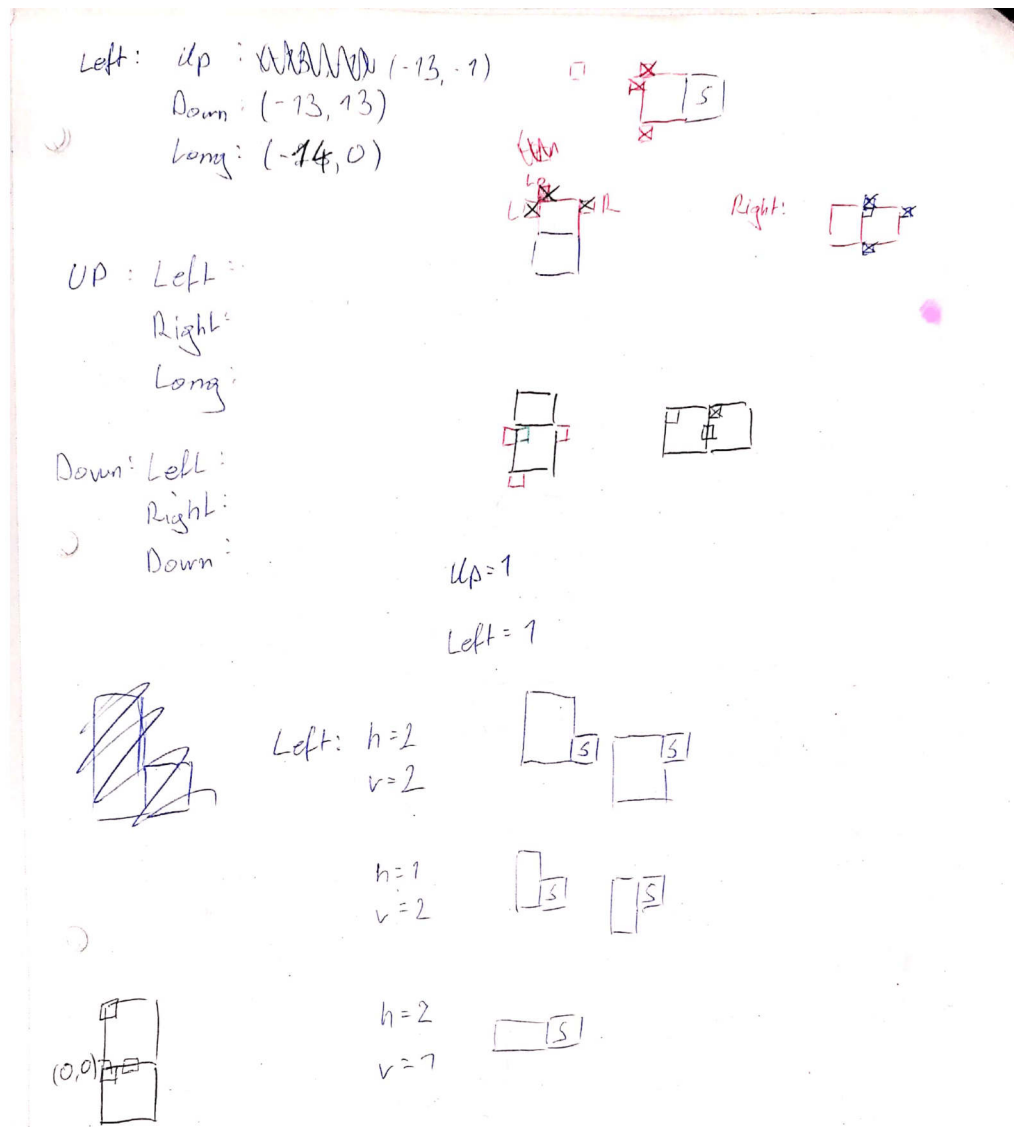 Left: Up : (-13, -1)
Down: (-13, 13)
Long: (-14, 0)
S
L R
Right:
UP : Left:
Right:
Long:
Down: Left:
Right:
Down:
Up=1
Left=1
Left: h=2
v=2
S
S
h=1
v=2
S
S
h=2
v=1
S
(0,0)